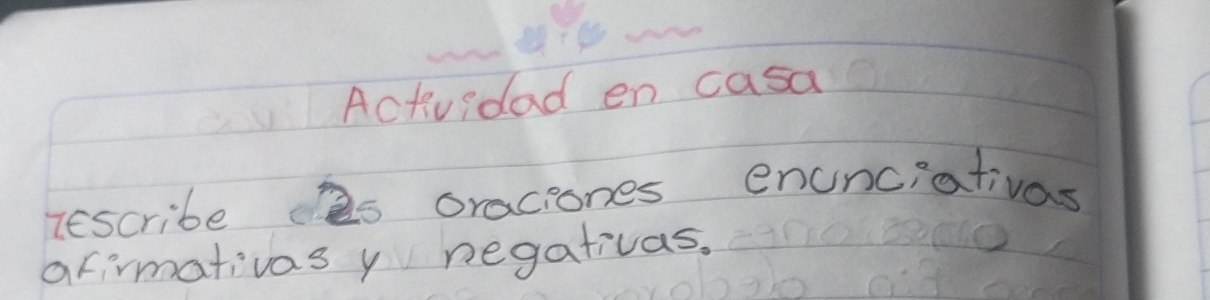 Actividad en casa
1Escribe oraciones enunciativas
afirmativas y negativas.